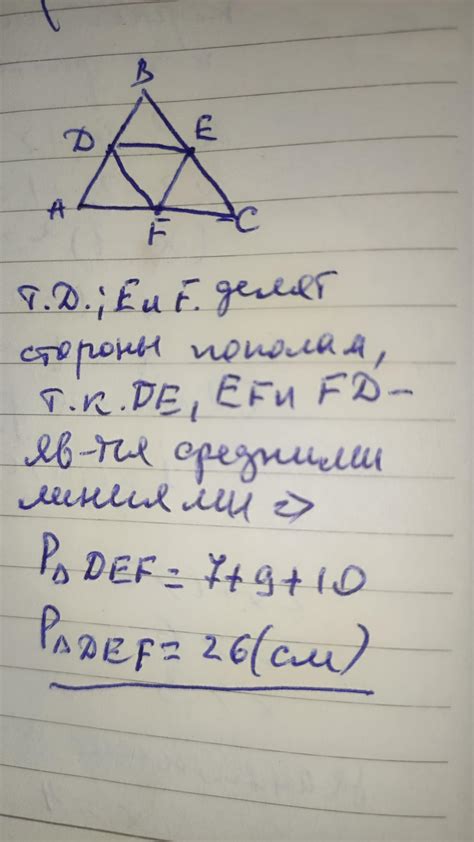 B
D E
A F C
т. D.; E и F. делят
стороны пополам,
т.к. DE, EF и FD –
яв-тся средними
линиями =>
P∆ DEF = 7+9+10
P∆DEF = 26(см)